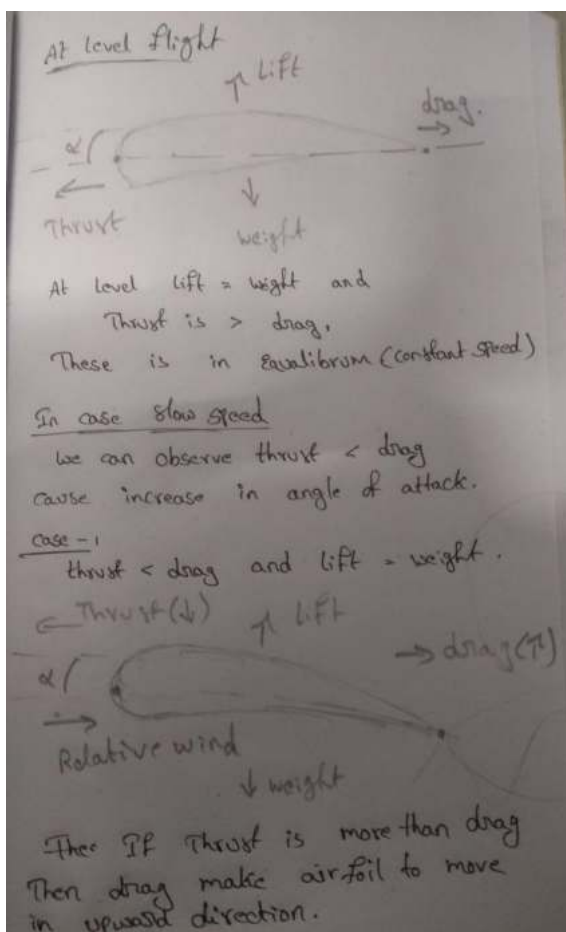 At level flight
↑ Lift
drag.
→
α
←
Thrust
↓
weight
At level lift = wight and
Thrust is > drag.
These is in Equalibrum (constant speed)
In case slow speed
we can observe thrust < drag
cause increase in angle of attack.
case - 1
thrust < drag and lift = weight.
← Thrust (↓)
↑ Lift
→ drag (↑)
α
→
Relative wind
↓ weight
If Thrust is more than drag
Then drag make airfoil to move
in upward direction.